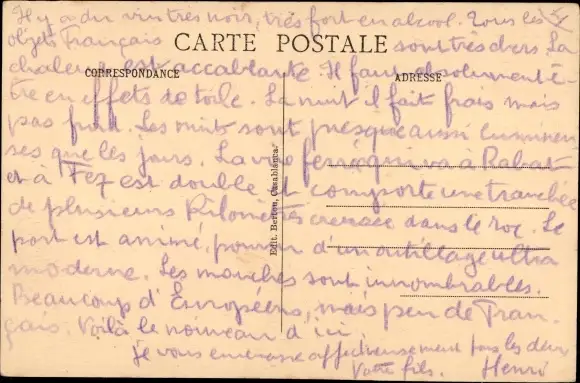 Il y a du vin très noir, très fort en alcool. Tous les
objets Français sont très chers. La
CARTE POSTALE
chaleur est accablante. Il faut absolument ê-
CORRESPONDANCE
ADRESSE
tre en effets de toile. La nuit il fait frais mais
pas froid. Les nuits sont presque aussi lumineu
ses que les jours. La voie ferrée qui va à Rabat
et à Fez est double et comporte une tranchée
de plusieurs kilomètres creusée dans le roc. Le
port est animé, pourvu d'un outillage ultra
moderne. Les mouches sont innombrables.
Beaucoup d'Européens, mais peu de Fran
çais. Voilà le nouveau d'ici.
Je vous embrasse affectueusement tous les deux
Votre fils. Henri
Edit. Bertou, Casablanca.